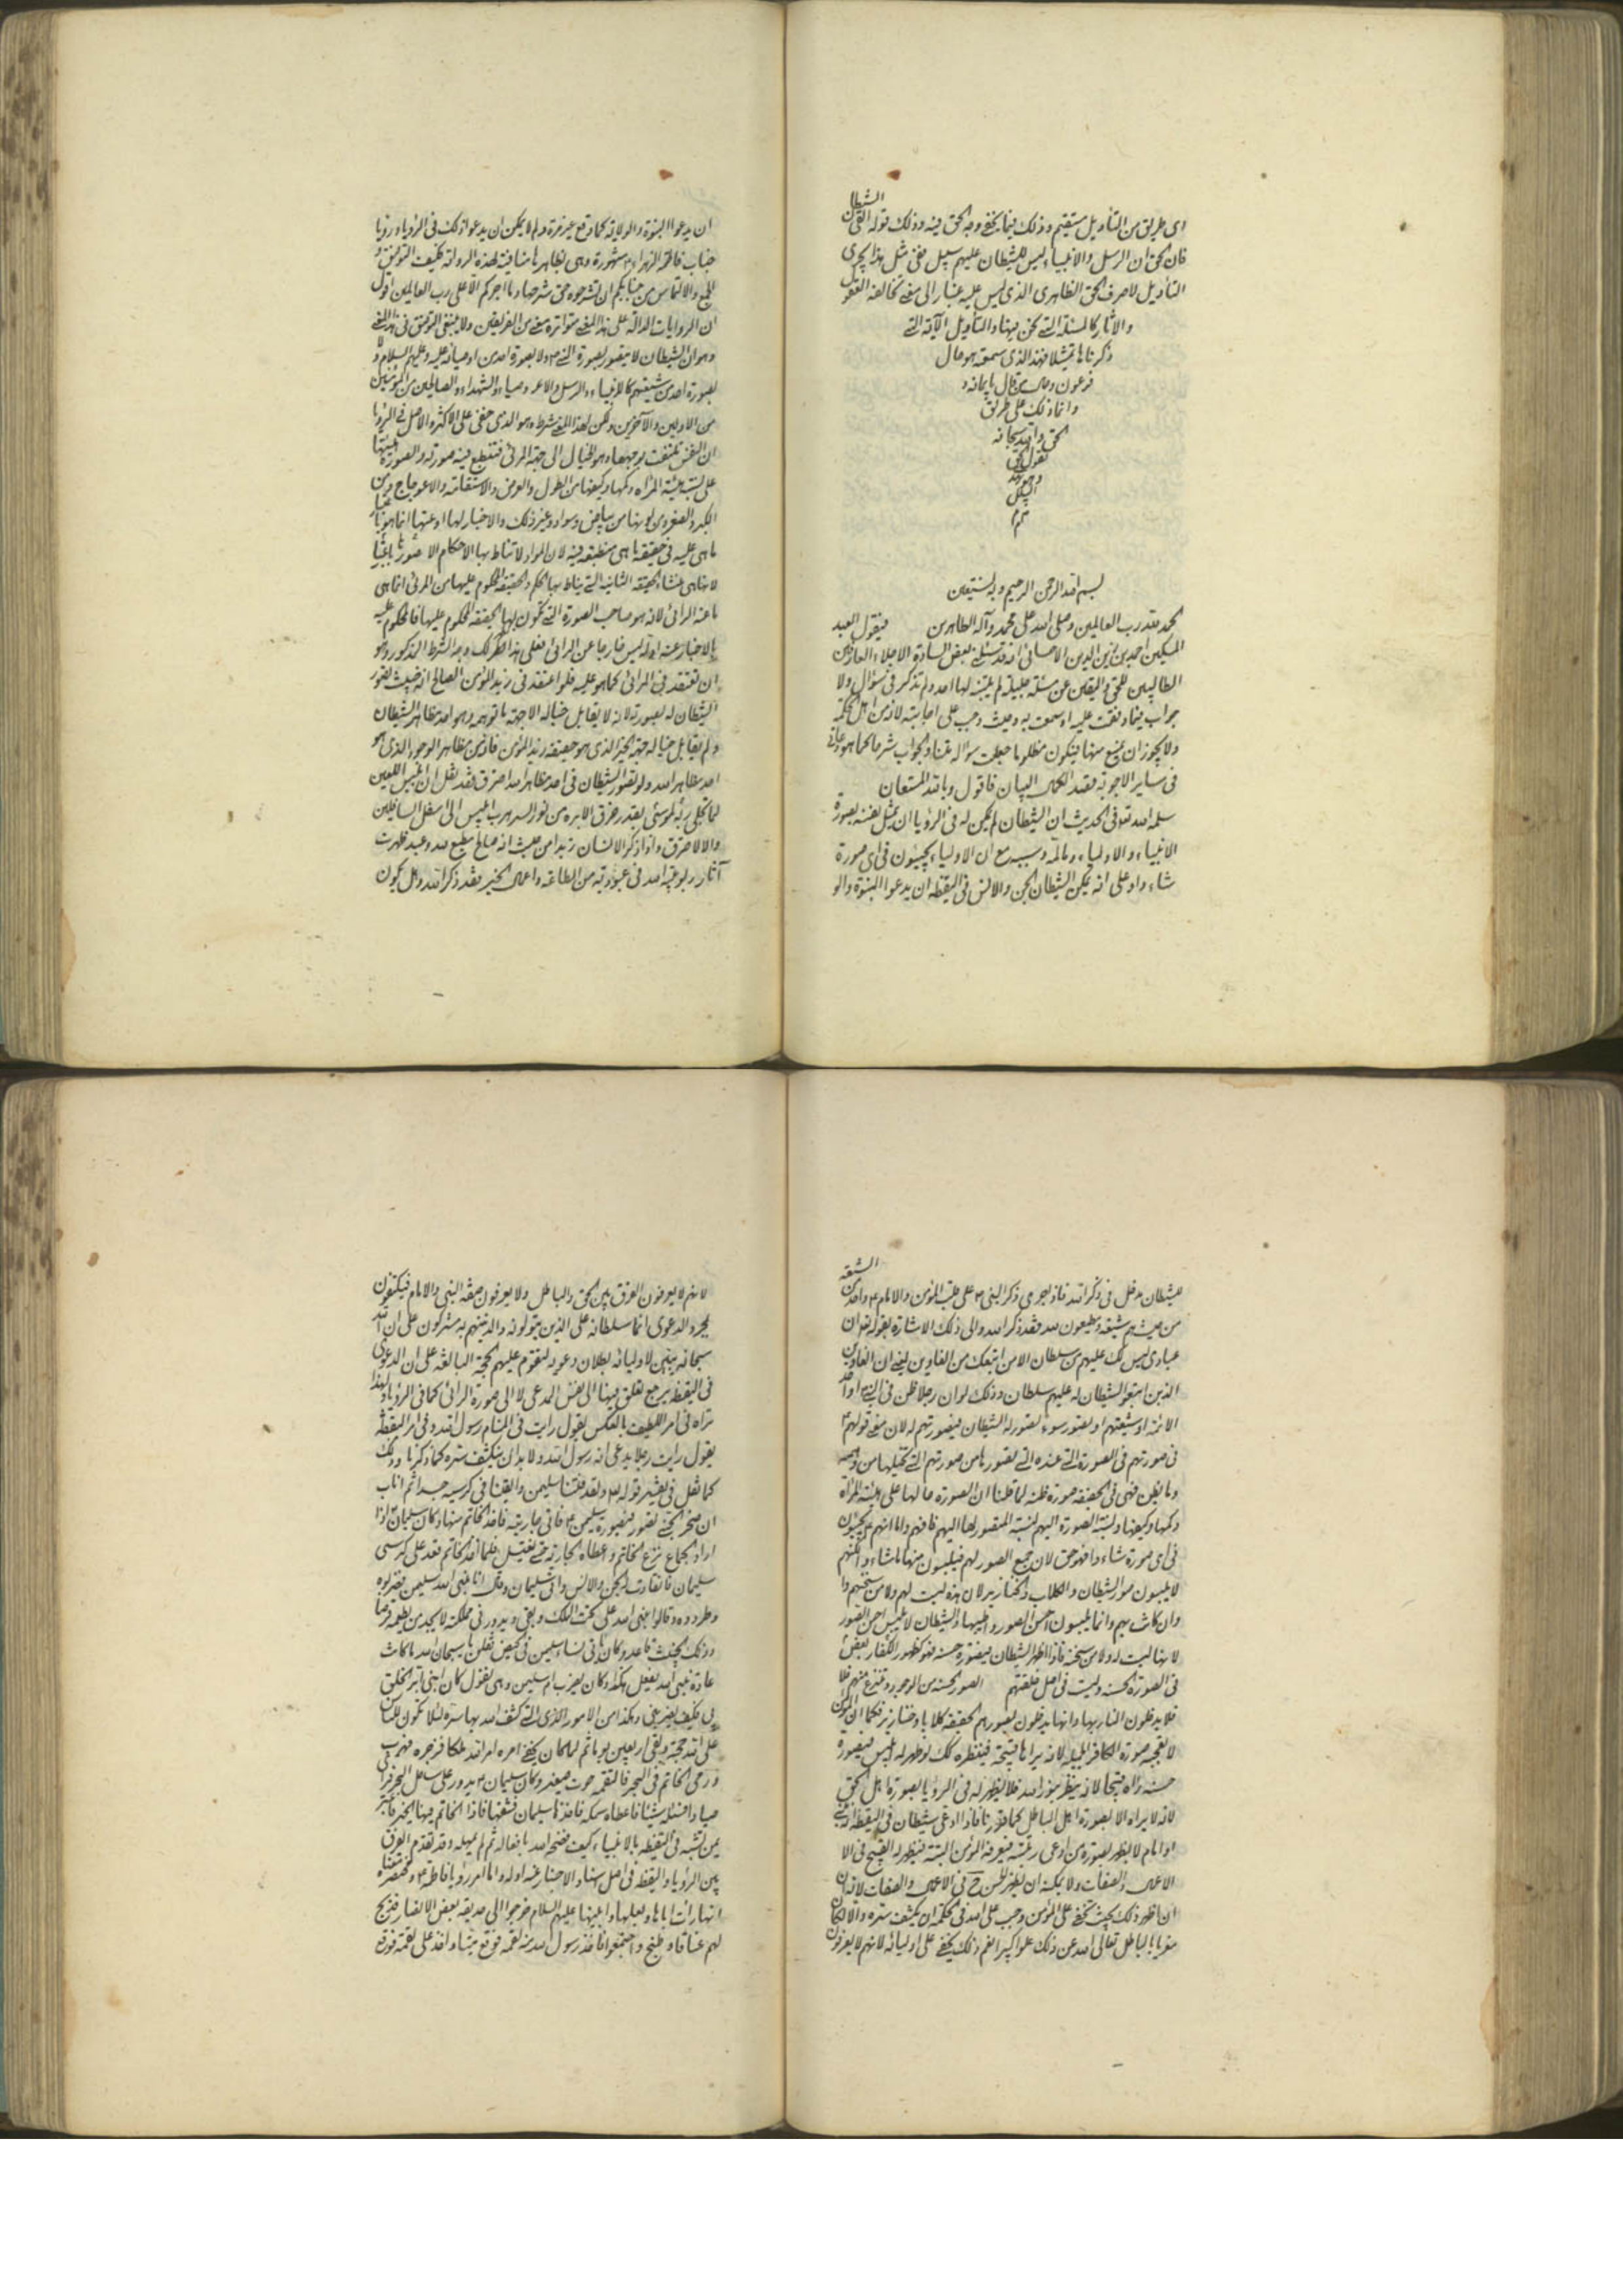 الشيطان
اى طريق من التأويل مستقيم وذلك فيما يخفى وجه الحق فيه وذلك قوله القى
فان الحق ان الرسل والانبياء ليس للشيطان عليهم سبيل ففى مثل هذا يجرى
التأويل لاصرف الحق الظاهرى الذى ليس عليه غبار الى معنى تخالفه العقول
والاثار كالمسئلة التى نحن بهنا والتأويل الآية التى
ذكرناها تمثيلا فهذا الذى سمعته هو حال
فرعون وحال من قال بايمانه
وانما ذلك على طريق
الحق والله سبحانه
يقول الحق
وهو يهد
السبيل
تم
بسم الله الرحمن الرحيم وبه نستعين
الحمد لله رب العالمين وصلى الله على محمد وآله الطاهرين فيقول العبد
المسكين احمد بن زين الدين الاحسائى انه قد سئلنى بعض السادة الاجلاء العارفين
الطالبين للحق واليقين عن مسئلة جليلة لم يتنبه لها احد ولم تذكر فى سؤال ولا
جواب فيما وقفت عليه او سمعت به وحيث وجب على اجابته لانه من اهل الحكمة
ولا يجوز ان يمنع منها فيكون مظلوما جعلت سؤاله متنا والجواب شرحا كما هو عادتى
فى ساير الاجوبة قصدا لكمال البيان فاقول وبالله المستعان
سلمه الله تعالى فى الحديث ان الشيطان لم يمكن له فى الرؤيا ان يمثل نفسه بصورة
الانبياء والاولياء وما لمه وسببه مع ان الاولياء يجيئون فى اى صورة
شاء واو على انه يمكن الشيطان الجن والانس فى اليقظة ان يدعوا النبوة والو
ان يدعوا النبوة والولاية كما وقع غير مرة ولم لا يمكن ان يدعوا ذلك فى الرؤيا ورؤيا
جناب فاطمة الزهراء مشهورة وهى بظاهرها منافية لهذه الرواية فكيف التوفيق و
الجمع والالتماس من جنابكم ان تشرحوه حق شرحها وما اجركم الا على رب العالمين اقول
ان الروايات الدالة على هذا المعنى متواترة معنى من الفريقين ولا ينبغى التوقف فى هذا المعنى
وهو ان الشيطان لا يتصور بصورة النبى ولا بصورة احد من اوصيائه عليه وعليهم السلام ولا
بصورة احد من شيعتهم كالانبياء والرسل والاوصياء والشهداء والصالحين من المؤمنين
من الاولين والآخرين ولكن لهذا المعنى شرط وهو الذى خفى على الاكثر والاصل فى الرؤيا
ان النفس تلتفت بوجهها وهو الخيال الى جهة المرئى فتنطبع فيه صورته والصورة هيئتها
على نسبة هيئة المرآة وكمها وكيفها من الطول والعرض والاستقامة والاعوجاج ومن
الكبر والصغر ومن لونها من بياض وسواد وغير ذلك والاخبار لها او عنها انما هو
ما هى عليه فى حقيقة ما هى منطبعة فيه لان المواد لا تناط بها الاحكام الا صورها
لانها هى منشاء الحقيقة الثانية التى يناط بها الحكم والحقيقة المحكوم عليها من المرئى انما هى
ما عند الرائى لانه هو صاحب الصورة التى تكون بها الحقيقة المحكوم عليها فالمحكوم عليه
بالاخبار عنه اوله ليس خارجا عن الرائى فعلى هذا يظهر لك وجه الشرط المذكور وهو
ان تعتقد فى المرائى كما هو عليه فلو اعتقد فى زيد المؤمن الصالح انه خبيث تصور
الشيطان له بصورته لانه لا يقابل خياله الا جهة ما توهم وهو احد مظاهر الشيطان
ولم يقابل خياله جهة الخير الذى هو حقيقة زيد المؤمن فانه من مظاهر الوجود الذى هو
احد مظاهر الله ولو تصور الشيطان فى احد مظاهر الله احترق فقد نقل ان ابليس اللعين
لما تجلى ربه لموسى بقدر خرق الابرة من نور الستر هرب ابليس الى اسفل السافلين
والا لاحترق واذا ذكر الانسان زيدا من حيث انه صالح مطيع لله وعبد ظهرت
آثار ربوبية الله فى عبوديته من الطاعة واعمال الخير فقد ذكر الله وهل يكون
الشيعة
للشيطان مدخل فى ذكر الله فاذا جرى ذكر النبى على قلب المؤمن والامام واحد من
من حيث هم شيعة ومطيعون لله فقد ذكر الله والى ذلك الاشارة بقوله تعالى ان
عبادى ليس لك عليهم من سلطان الا من اتبعك من الغاوين يعنى ان الغاوين
الذين اتبعوا الشيطان له عليهم سلطان وذلك لو ان رجلا ظن فى النبى او احد
الائمة او شيعتهم او تصور سوء تصور له الشيطان فيصورتهم له لان معنى قولهم
فى صورتهم فى الصورة التى عنده التى تصورها من صورتهم التى تخيلها من وهمه
وما يظن فهى فى الحقيقة صورة ظنه لما قلنا ان الصورة حالها على هيئة المرآة
وكمها وكيفها ونسبة الصورة اليهم لنسبة المتصور لها اليهم فافهم واما انهم يجيئون
فى اى صورة شاءوا فهو حق لان جميع الصور لهم فيلبسون منها ما شاءوا لكنهم
لا يلبسون صور الشيطان والكلاب والخنازير لان هذه ليست لهم ولا من سنخهم
وان كانت بهم وانما يلبسون احسن الصور واطيبها والشيطان لا يلبس احسن الصور
لانها ليست له ولا من سنخه فاذا ظهر الشيطان بصورة حسنة فهو كظهور الكفار بعض
فى الصورة الحسنة وليست فى اصل خلقتهم الصور الحسنة من الوجود وتنزع منهم فلا
فلا يدخلون النار بها وانما يدخلون بصورهم الحقيقية كلابا وخنازير فكما ان المؤمن
لا تعجبه صورة الكافر الجميلة لانه يراها قبيحة فينظره كذلك لو ظهر له ابليس فى صورة
حسنة رآه قبيحا لانه ينظر بنور الله فلا يظهر له فى الرؤيا بصورة اهل الحق
لانه لا يراه الا بصورة اهل الباطل كما قررنا فاذا ادعى شيطان فى اليقظة انه نبى
او امام لا يظهر بصورة من ادعى رتبته فيعرفه المؤمن البتة فيظهر له القبيح فى الا
الاعمال والصفات ولا يمكنه ان يظهر للمؤمن فى الاعمال والصفات لانه ان
ان اظهر ذلك بحيث تخفى على المؤمن وجب على الله فى الحكمة ان يكشف ستره والا لكان
مغريا بالباطل تعالى الله عن ذلك علوا كبيرا نعم ذلك يخفى على اوليائه لانهم لا يعرفون
لانهم لا يعرفون الفرق بين الحق والباطل ولا يعرفون صفة النبى والامام فيكتفون
بمجرد الدعوى انما سلطانه على الذين يتولونه والذينهم به مشركون على ان الله
سبحانه يبين لاوليائه بطلان دعواه لتقوم عليهم الحجة البالغة على ان الدعوى
فى اليقظة يرجع تعلق فيها الى نفس المدعى لا الى صورة الرائى كما فى الرؤيا ولهذا
تراه فى امر اللطيف بالعكس يقول رايت فى المنام رسول الله وفى امر اليقظة
يقول رايت رجلا يدعى انه رسول الله ولا بد ان ينكشف ستره كما ذكرنا وذلك
كما نقل فى تفسير قوله تعالى ولقد فتنا سليمن والقينا على كرسيه جسدا ثم اناب
ان صخر الجنى تصور بصورة سليمن فاتى جاريته فاخذ الخاتم منها وكان سليمان اذا
اراد الجماع نزع الخاتم واعطاه الجارية حتى يغتسل فلما اخذ الخاتم قعد على كرسى
سليمان فانقادت له الجن والانس واتى سليمان وقال انا نبى الله سليمن فضربوه
وطردوه وقالوا نبى الله على تخت الملك وبقى يدور فى مملكته لا يجد من يطعمه قرصا
وذلك الخبيث قاعد وكان ياتى نساء سليمن فى الحيض فقلن سبحان الله ما كانت
عادة نبى الله يفعل هكذا وكان يضرب ام سليمن وهى تقول كان ابنى ابر الخلق
بى فكيف يضربنى وهكذا من الامور الذى التى كشف الله بها ستره لئلا تكون للناس
على الله حجة وبقى اربعين يوما ثم لما كان يخفى امره امر الله ملكا فزجره فهرب
ورمى الخاتم فى البحر فالتقمه حوت صغير وكان سليمان يدور على ساحل البحر فراى
صيادا فسئله شيئا فاعطاه سمكة فاخذها سليمان فشقها فاذا الخاتم فيها
بمن تشبه فى اليقظة بالانبياء كيف فضحه الله بافعاله ثم لم يمهله وقد تقدم الفرق
بين الرؤيا واليقظة فى اصل سنها والاخبار عنه اوله واما امر رؤيا فاطمة ومختصرها
انها رات اباها وبعلها وابنيها عليهم السلام خرجوا الى حديقة بعض الانصار فذبح
لهم عناقا وطبخ واجتمعوا فاخذ رسول الله منه لقمة فوقع ميتا واخذ على لقمة فوقع